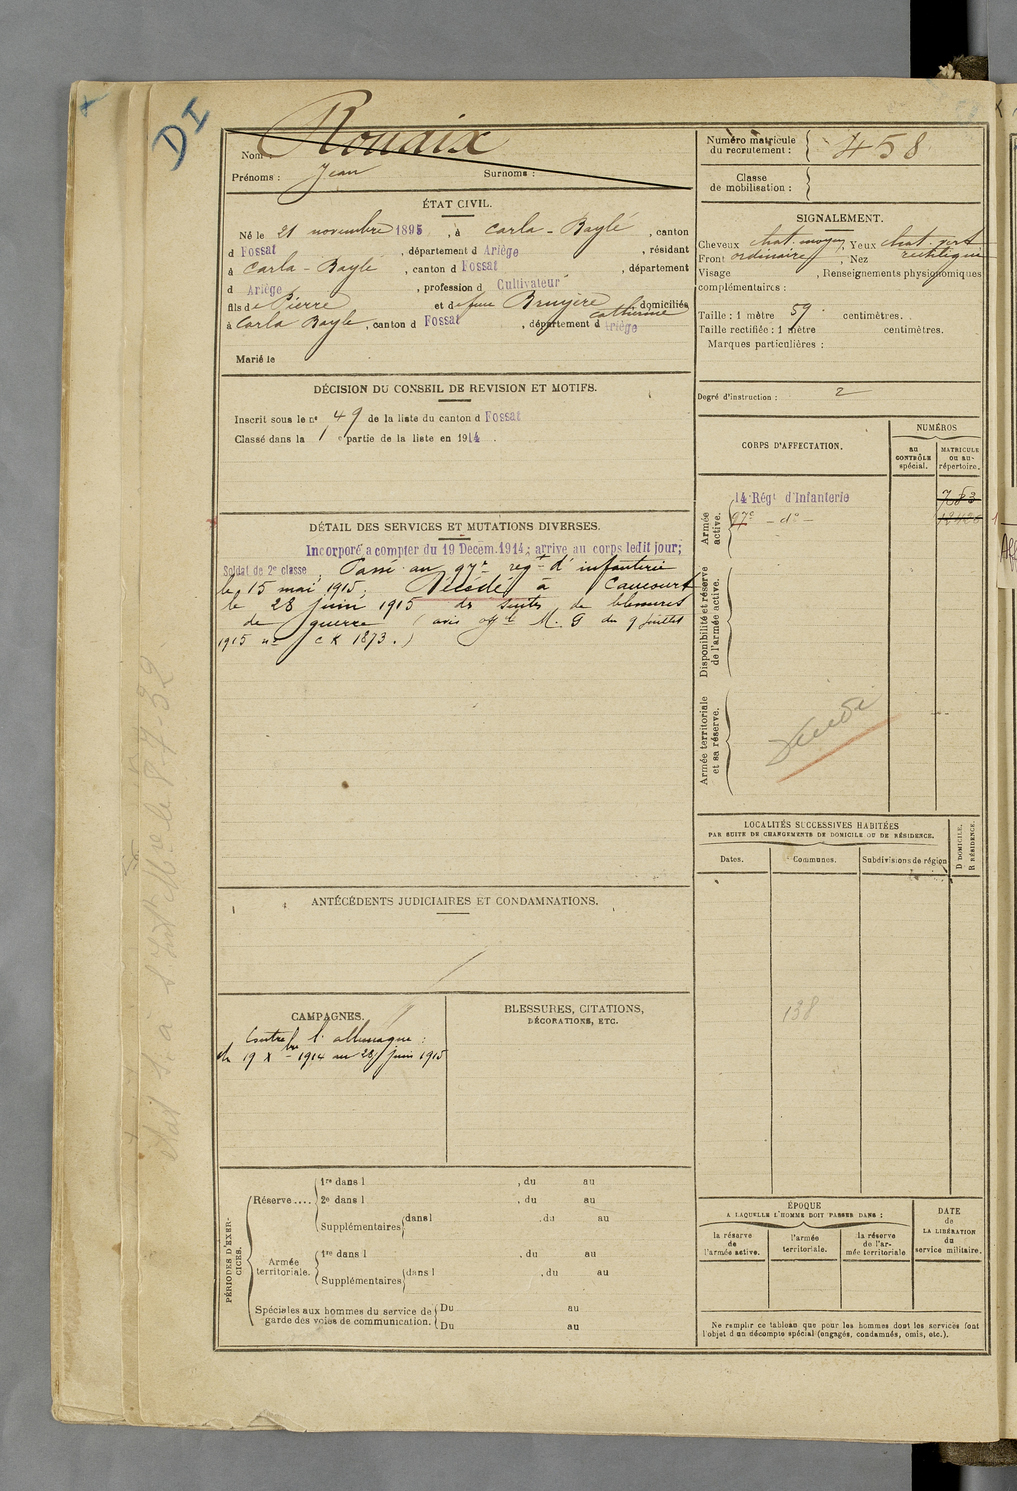 DI
Nom : Roudix
Prénoms : Jean Surnoms :
Numéro matricule du recrutement : 458
Classe de mobilisation :
ÉTAT CIVIL.
Né le 21 novembre 1895, à Carla-Bayle, canton
d Fossat, département d Ariège, résidant
à Carla-Bayle, canton d Fossat, département
d Ariège, profession d Cultivateur
fils de Pierre et de feue Bruyère Catherine domiciliés
à Carla Bayle, canton d Fossat, département d Ariège
Marié le
SIGNALEMENT.
Cheveux chat. moyen, Yeux chat. vert
Front ordinaire, Nez rectiligne
Visage , Renseignements physionomiques
complémentaires :
Taille : 1 mètre 59 centimètres.
Taille rectifiée : 1 mètre centimètres.
Marques particulières :
Degré d'instruction : 2
DÉCISION DU CONSEIL DE REVISION ET MOTIFS.
Inscrit sous le nº 49 de la liste du canton d Fossat
Classé dans la 1 e partie de la liste en 1914
CORPS D'AFFECTATION.
NUMÉROS
au CONTRÔLE spécial.
MATRICULE ou au répertoire.
Armée active.
14 Régt d'Infanterie 783
97e - do -
Disponibilité et réserve de l'armée active.
Armée territoriale et sa réserve.
DÉTAIL DES SERVICES ET MUTATIONS DIVERSES.
Incorporé à compter du 19 Décem. 1914; arrive au corps ledit jour;
Soldat de 2e classe, Passé au 97e regt d'infanterie
le 15 mai 1915; Décédé à Caucourt
le 28 juin 1915 des suites de blessures
de guerre (avis offel M. G du 9 juillet
1915 no CK 1873.)
LOCALITÉS SUCCESSIVES HABITÉES
PAR SUITE DE CHANGEMENTS DE DOMICILE OU DE RÉSIDENCE.
Dates. Communes. Subdivisions de région
D DOMICILE.
R RÉSIDENCE.
138
ANTÉCÉDENTS JUDICIAIRES ET CONDAMNATIONS.
CAMPAGNES.
Contre l'allemagne :
du 19 Xbre 1914 au 28 juin 1915
BLESSURES, CITATIONS,
DÉCORATIONS, ETC.
PÉRIODES D'EXERCICES.
Réserve ....
1re dans l , du au
2e dans l , du au
Supplémentaires dans l , du au
Armée territoriale.
1re dans l , du au
Supplémentaires dans l , du au
Spéciales aux hommes du service de garde des voies de communication.
Du au
Du au
ÉPOQUE
A LAQUELLE L'HOMME DOIT PASSER DANS :
la réserve de l'armée active.
l'armée territoriale.
la réserve de l'armée territoriale
DATE de LA LIBÉRATION du service militaire.
Ne remplir ce tableau que pour les hommes dont les services font
l'objet d'un décompte spécial (engagés, condamnés, omis, etc.).